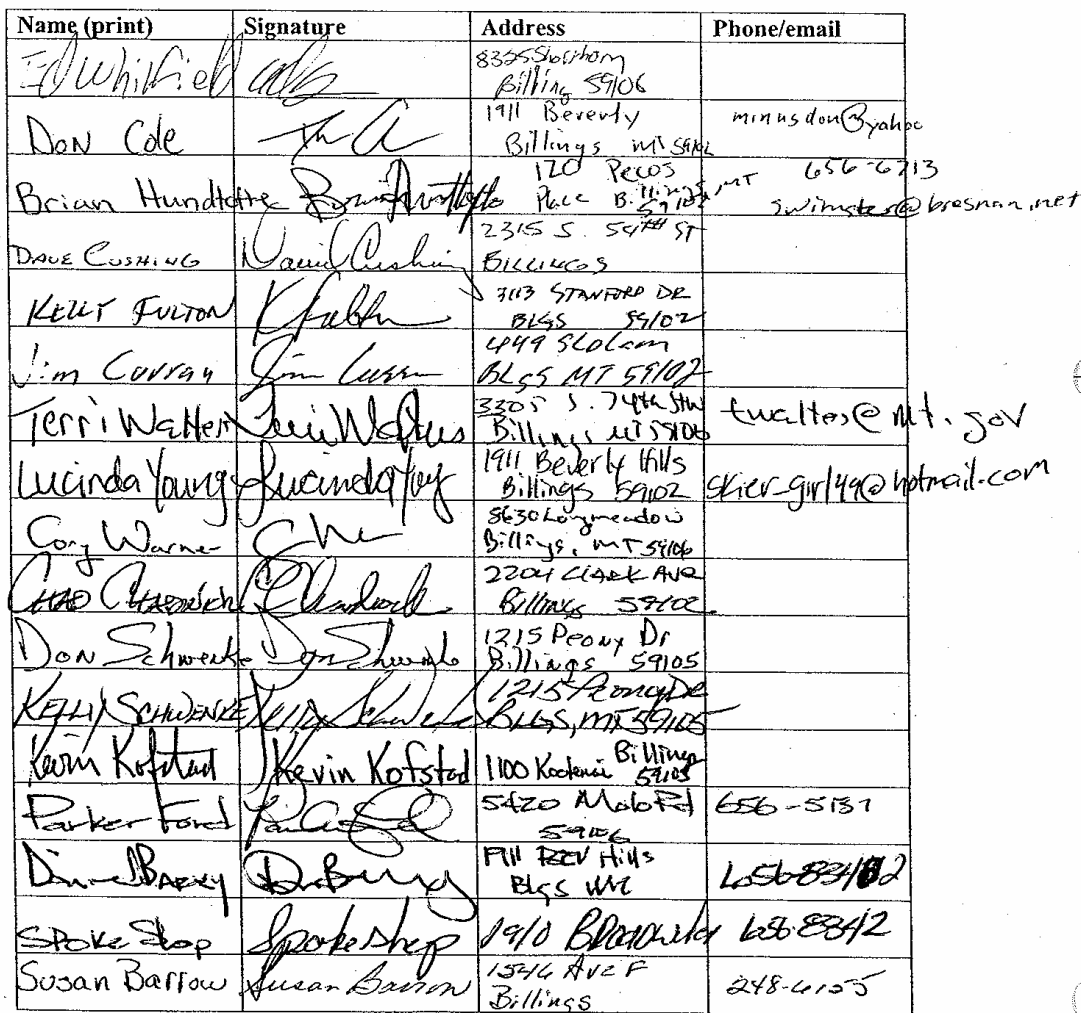 Name (print) Signature Address Phone/email
Ed Whitfield
Billing 59106
Don Cole
1911 Beverly
Billings MT 59102
minusdon@yahoo
Brian
120 Pecos
Place Billings, MT
59102
656-6713
@bresnan.net
Dave Cushing David Cushing
2315 S. 54th St
Billings
Kelly Fulton
3113 Stanford Dr
Blgs 59102
Jim Curran Jim Curran
449
Blgs MT 59102
Terri Walters Terri Walters
3305 S. 74th St W
Billings MT 59106
twalters@mt.gov
Lucinda Young Lucinda Young
1911 Beverly Hills
Billings 59102
skier_girl49@hotmail.com
Cory Warner
8630 Longmeadow
Billings, MT 59106
Chad Chadwick
2204 Clark Ave
Billings 59102
Don Schwenke Don Schwenke
1215 Peony Dr
Billings 59105
Kelly Schwenke Kelly Schwenke
1215 Peony Dr
Blgs, MT 59105
Kevin Kofstad Kevin Kofstad
1100 Kootenai Billings
59105
Parker Ford
5420 Rd
59106
656-5131
Barry
1911 Bev Hills
Blgs
656-8342
Spoke Shop Spoke shop
1910 Broadwater
656-8342
Susan Barrow Susan Barrow
1546 Ave F
Billings
248-6155